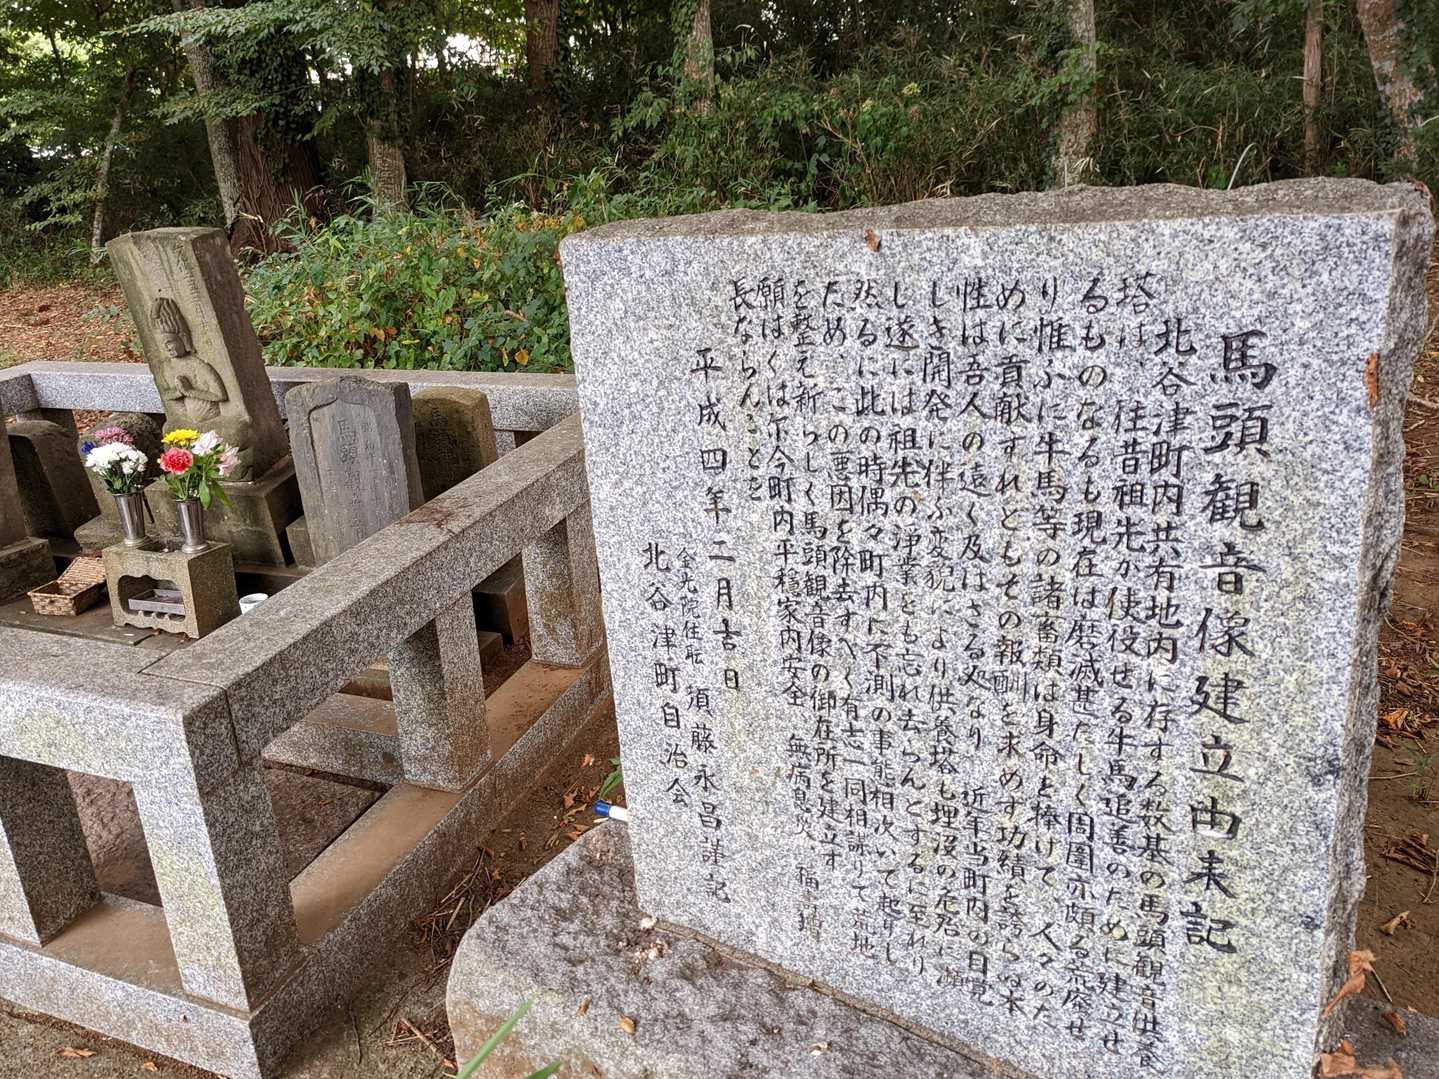 馬頭観音像建立由来記
北谷津町内共有地内に存する数基の馬頭観音供養
塔は、往昔祖先が使役せる牛馬追善のために建立せ
るものなるも現在は磨滅甚だしく周囲亦頗る荒廃せ
り惟ふに牛馬等の諸畜類は身命を捧けて、人々のた
めに貢献すれどもその報酬を求めず功績を誇らぬ本
性は吾人の遠く及はさる処なり 近年当町内の目覚
しき開発に伴ふ変貌により供養塔も埋没の危殆に瀕
し遂には祖先の浄業とも忘れ去らんとするに至れり
然るに此の時偶々町内に不測の事態相次いで起りし
ため、この悪因を除去すへく有志一同相諮りて荒地
を整え新らしく馬頭観音像の御在所を建立す
願はくは尓今町内平穏家内安全、無病息災、福寿
長ならんことを
平成四年二月吉日
金光院住職 須藤永昌謹記
北谷津町自治会
馬頭